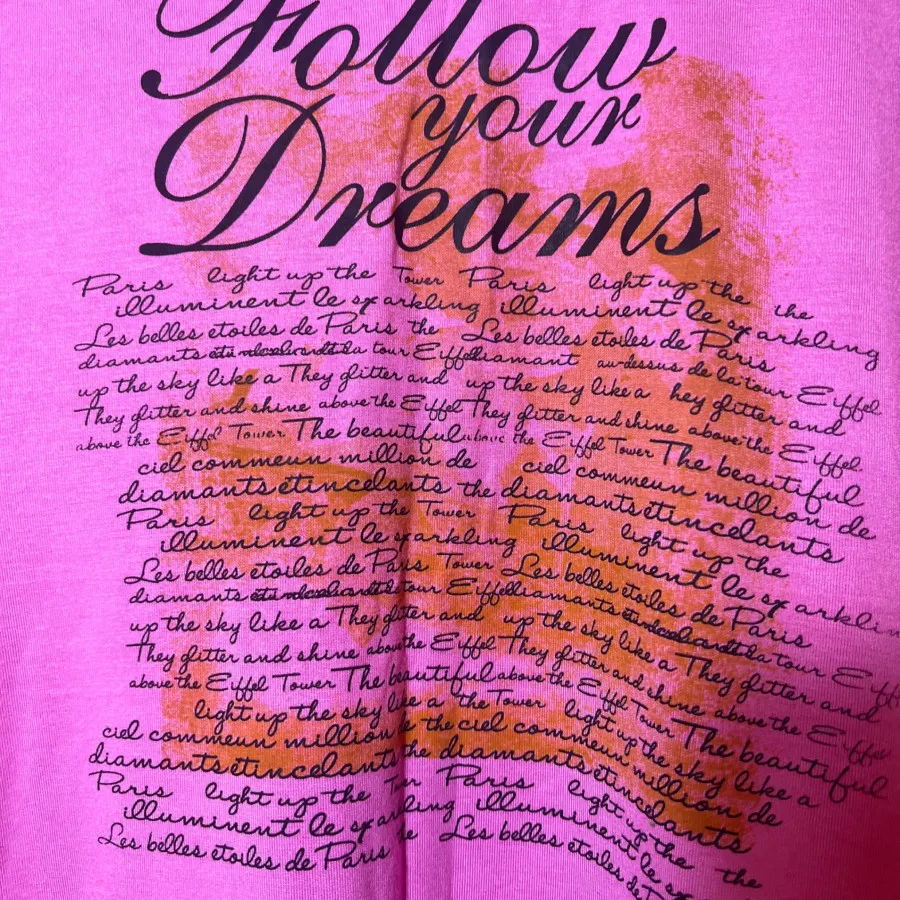 Follow
your
Dreams
Paris light up the Tower Paris light up the the
illuminent le sparkling illuminent le sparkling
Les belles etoiles de Paris the Les belles etoiles de Paris
diamants la tour Eiffel diamant au-dessus de la tour Eiffel
up the sky like a They glitter and up the sky like a hey glitter and
They glitter and shine above the Eiffel They glitter and shine above the Eiffel
above the Eiffel Tower The beautiful above the Eiffel Tower The beautiful
ciel commeun million de ciel commeun million de
diamants étincelants the diamants étincelants
Paris light up the Tower Paris light up the
illuminent le sparkling illuminent le sparklin
Les belles etoiles de Paris Tower Les belles etoiles de Paris
diamants tour Eiffel diamants la tour Eiff
up the sky like a They glitter and up the sky like a They glitter and
They glitter and shine above the Eiffel They glitter and shine above the Eiffel
above the Eiffel Tower The beautiful above the Eiffel Tower The beautiful
light up the sky like a the Tower light up the sky like a
ciel commeun million the ciel commeun million de
diamants étincelants the diamants étincelants
Paris light up the Paris light up the the
illuminent le sparkling illuminent le
Les belles etoiles de Paris Les belles etoiles de